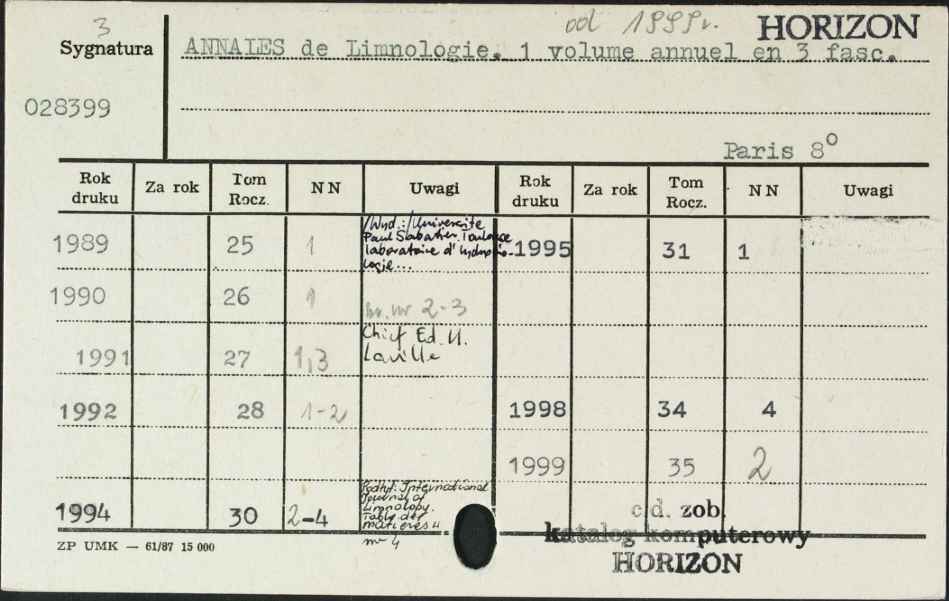 3
od 1999r. HORIZON
Sygnatura ANNALES de Limnologie. 1 volume annuel en 3 fasc.
028399
Paris 8°
Rok druku Za rok Tom Rocz. NN Uwagi Rok druku Za rok Tom Rocz. NN Uwagi
/Wyd.:/Université
Paul Sabatier Toulouse
laboratoire d'hydrobio-
logie...
1989 25 1 1995 31 1
1990 26 1 br. nr 2-3
Chief Ed. H.
Laville
1991 27 1,3
1992 28 1-2 1998 34 4
1999 35 2
Podtyt. International
Journal of
Limnology.
Table des
matières
nr 4
1994 30 2-4
c.d. zob.
katalog komputerowy
HORIZON
ZP UMK — 61/87 15 000